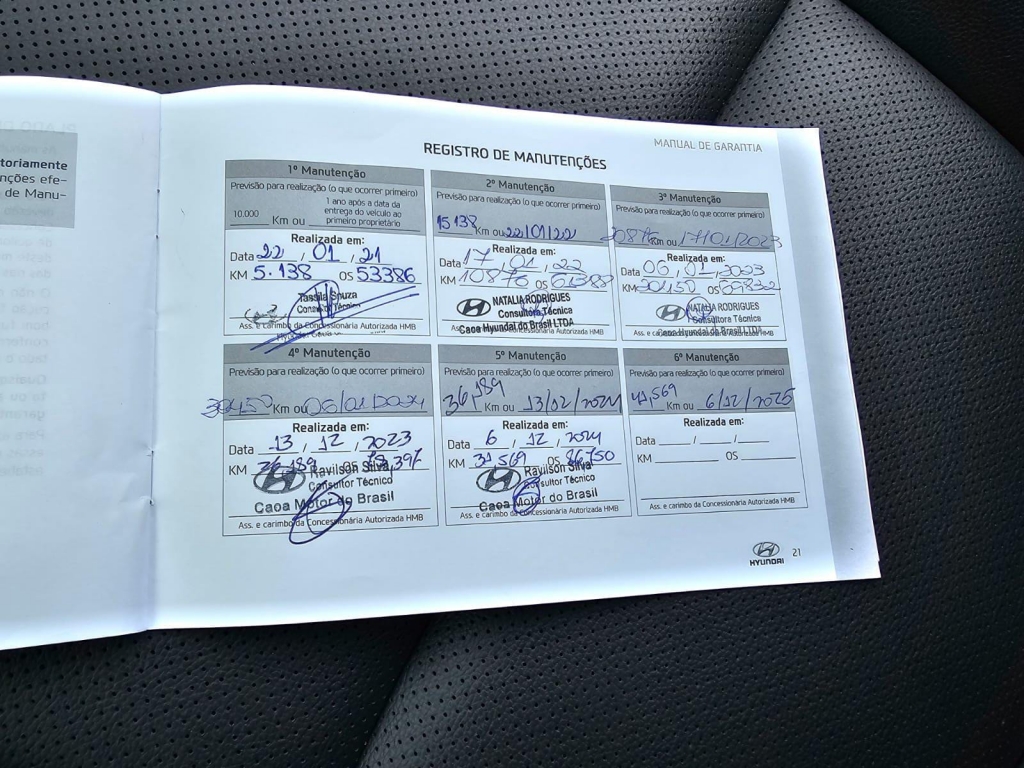 toriamente
nções efe-
de Manu-
MANUAL DE GARANTIA
REGISTRO DE MANUTENÇÕES
1º Manutenção
Previsão para realização (o que ocorrer primeiro)
10.000 Km ou 1 ano após a data da
entrega do veículo ao
primeiro proprietário
Realizada em:
Data 22 / 01 / 21
KM 5.138 OS 53386
Tassila Souza
Consultor Técnico
Ass. e carimbo da Concessionária Autorizada HMB
2º Manutenção
Previsão para realização (o que ocorrer primeiro)
15138 Km ou 22/01/22
Realizada em:
Data 17 / 01 / 22
KM 10876 OS 61388
NATALIA RODRIGUES
Consultora Técnica
Caoa Hyundai do Brasil LTDA
Ass. e carimbo da Concessionária Autorizada HMB
3º Manutenção
Previsão para realização (o que ocorrer primeiro)
20876 Km ou 17/01/2023
Realizada em:
Data 06 / 01 / 2023
KM 30450 OS 69832
NATALIA RODRIGUES
Consultora Técnica
Caoa Hyundai do Brasil LTDA
Ass. e carimbo da Concessionária Autorizada HMB
4º Manutenção
Previsão para realização (o que ocorrer primeiro)
30450 Km ou 06/01/2024
Realizada em:
Data 13 / 12 / 2023
KM 26.189 OS 78.397
Ravilson Silva
Consultor Técnico
Caoa Motor do Brasil
Ass. e carimbo da Concessionária Autorizada HMB
5º Manutenção
Previsão para realização (o que ocorrer primeiro)
36,189 Km ou 13/02/2024
Realizada em:
Data 6 / 12 / 2024
KM 31,569 OS 86,750
Ravilson Silva
Consultor Técnico
Caoa Motor do Brasil
Ass. e carimbo da Concessionária Autorizada HMB
6º Manutenção
Previsão para realização (o que ocorrer primeiro)
41,569 Km ou 6/12/2025
Realizada em:
Data ____ / ____ / ____
KM ____ OS ____
Ass. e carimbo da Concessionária Autorizada HMB
HYUNDAI 21